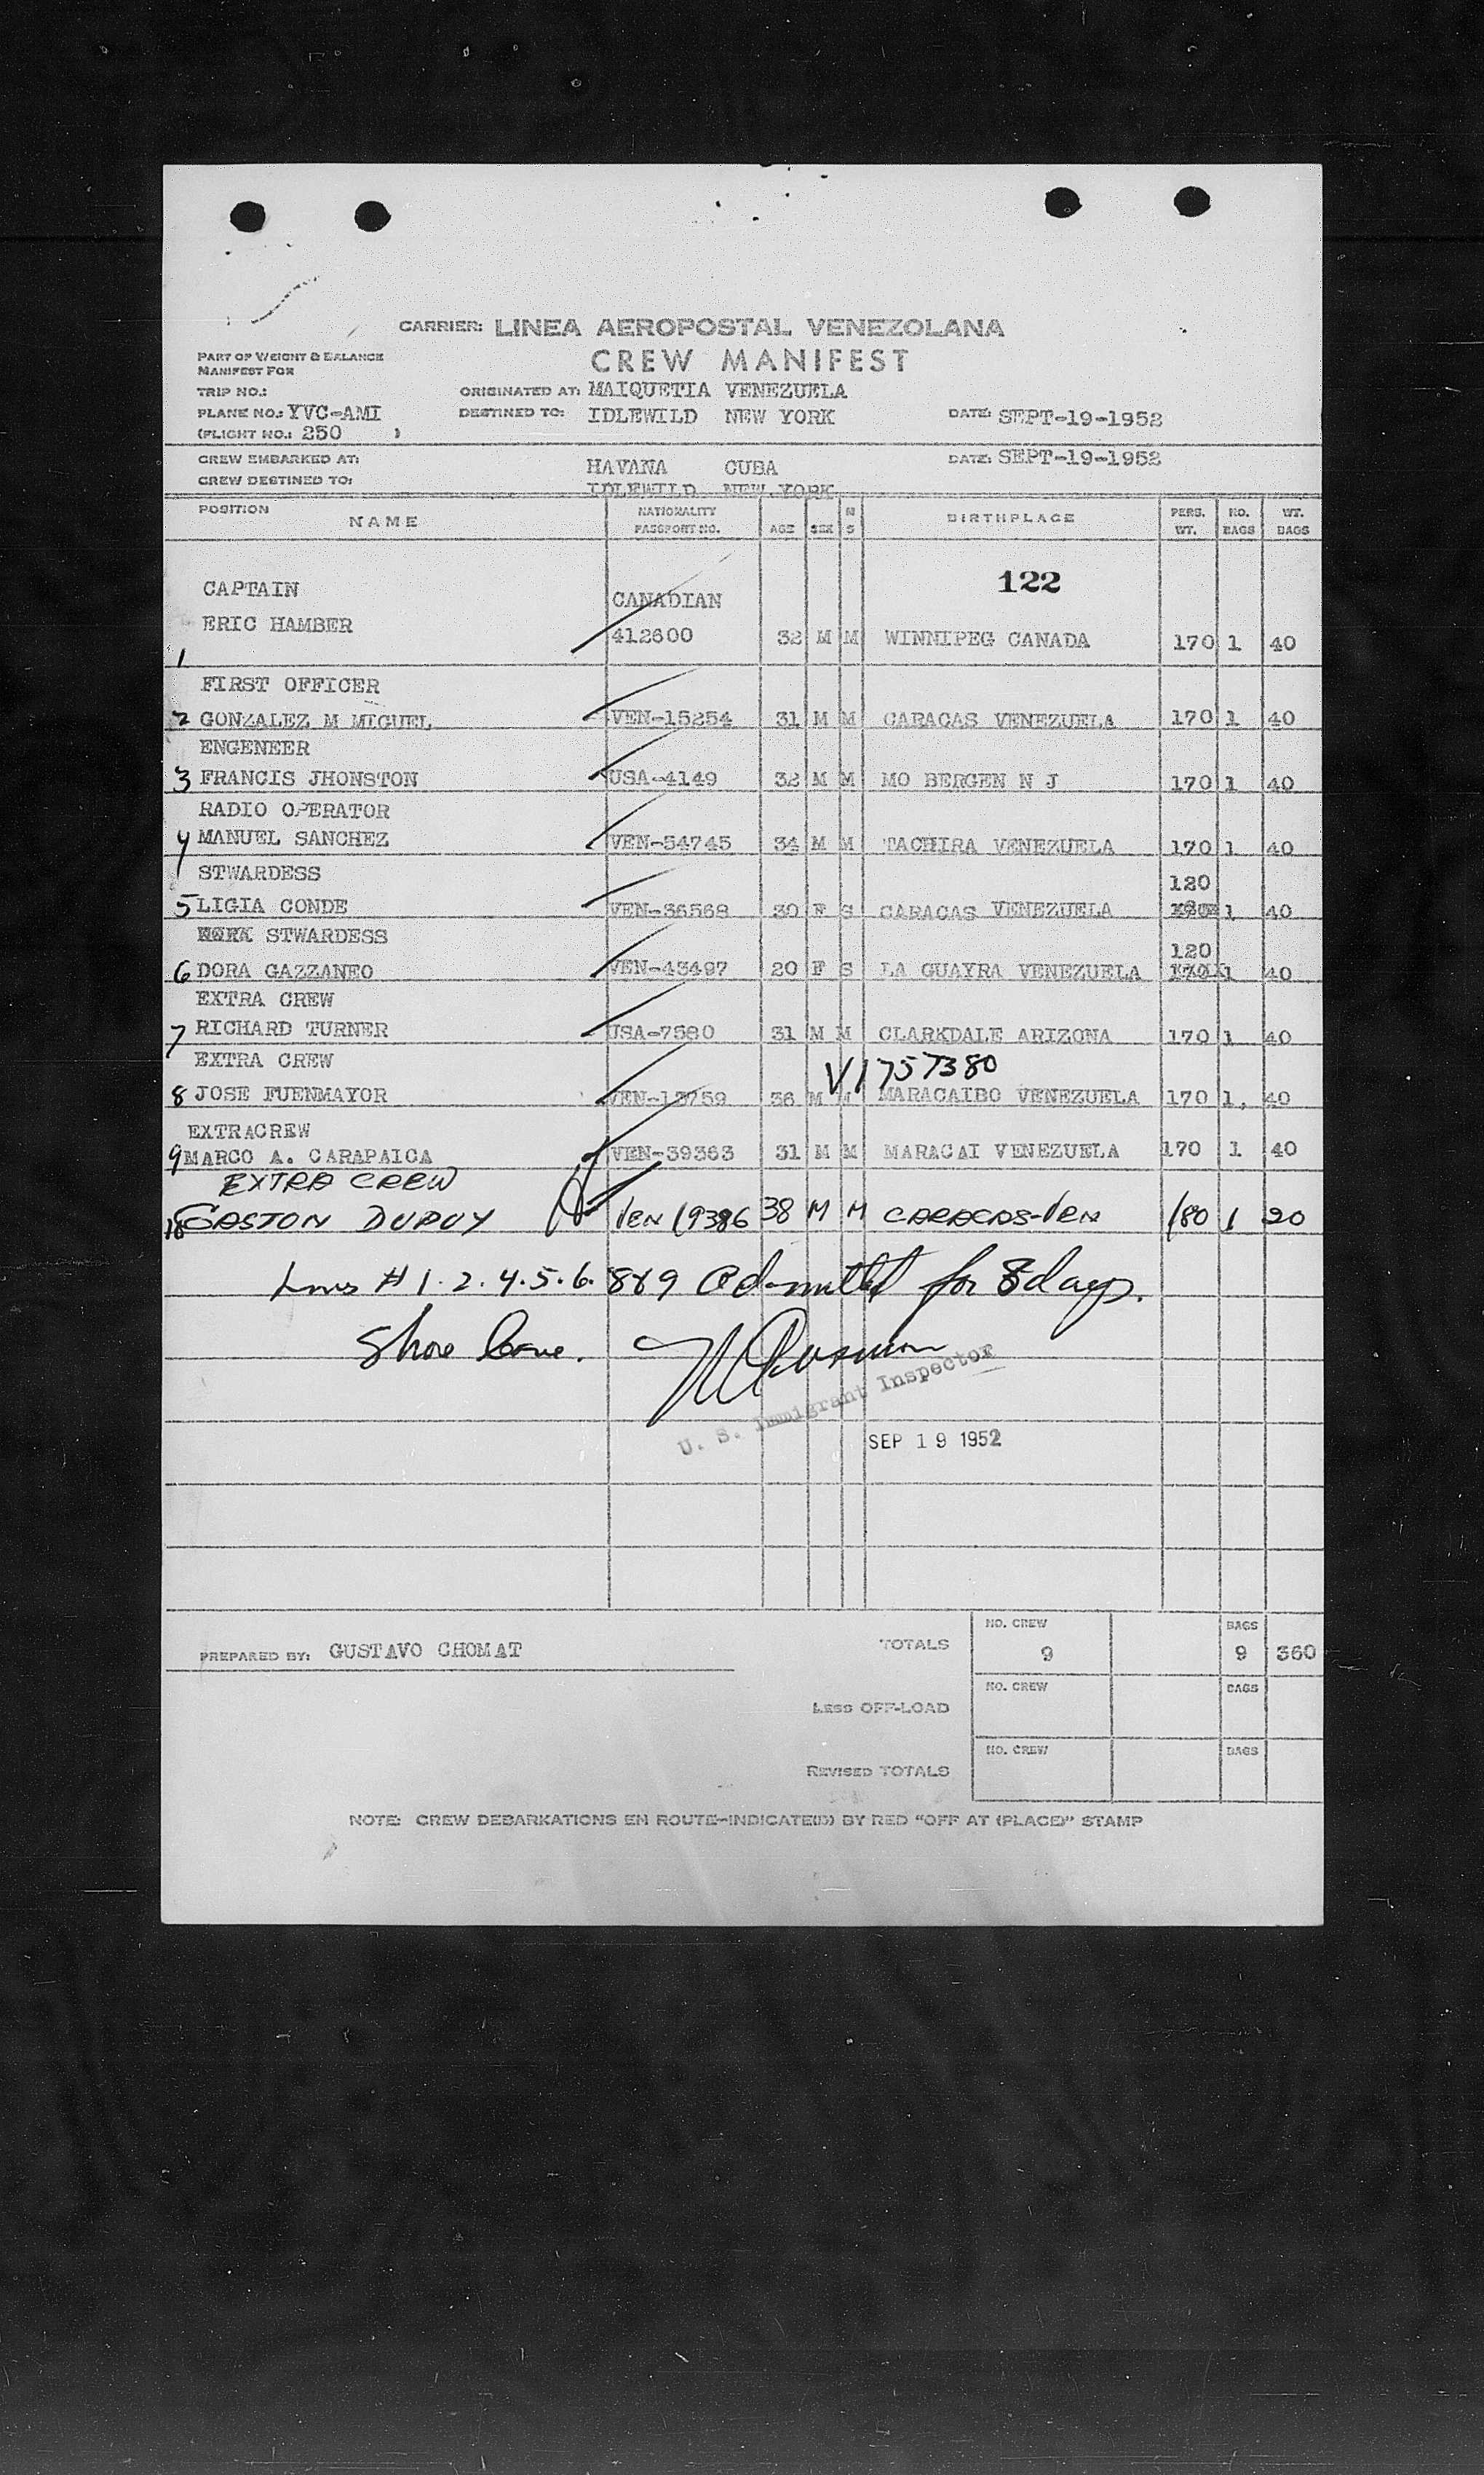 CARRIER: LINEA AEROPOSTAL VENEZOLANA
CREW MANIFEST
PART OF WEIGHT & BALANCE
MANIFEST FOR
TRIP NO.: ORIGINATED AT: MAIQUETIA VENEZUELA
PLANE NO.: YVC-AMI DESTINED TO: IDLEWILD NEW YORK DATE: SEPT-19-1952
(FLIGHT NO.: 250 )
CREW EMBARKED AT: HAVANA CUBA DATE: SEPT-19-1952
CREW DESTINED TO: IDLEWILD NEW YORK
POSITION NAME NATIONALITY PASSPORT NO. AGE SEX M S BIRTHPLACE PERS. WT. NO. BAGS WT. BAGS
122
CAPTAIN CANADIAN
1 ERIC HAMBER 412600 32 M M WINNIPEG CANADA 170 1 40
FIRST OFFICER
2 GONZALEZ M MIGUEL VEN-15254 31 M M CARACAS VENEZUELA 170 1 40
ENGENEER
3 FRANCIS JHONSTON USA-4149 32 M M MO BERGEN N J 170 1 40
RADIO OPERATOR
4 MANUEL SANCHEZ VEN-54745 34 M M TACHIRA VENEZUELA 170 1 40
STWARDESS 120
5 LIGIA CONDE VEN-36568 30 F S CARACAS VENEZUELA 1 40
STWARDESS 120
6 DORA GAZZANEO VEN-43497 20 F S LA GUAYRA VENEZUELA 170 1 40
EXTRA CREW
7 RICHARD TURNER USA-7580 31 M M CLARKDALE ARIZONA 170 1 40
EXTRA CREW V1757380
8 JOSE FUENMAYOR VEN-13759 36 M M MARACAIBO VENEZUELA 170 1, 40
EXTRACREW
9 MARCO A. CARAPAICA VEN-39363 31 M M MARACAI VENEZUELA 170 1 40
EXTRA CREW
10 GASTON DUPUY VEN 19386 38 M M CARACAS-VEN 180 1 20
Lines # 1.2.4.5.6. 8&9 Admitted for 8 days.
Shore leave.
U. S. Immigrant Inspector
SEP 19 1952
PREPARED BY: GUSTAVO CHOMAT
TOTALS NO. CREW 9 BAGS 9 360
LESS OFF-LOAD NO. CREW BAGS
REVISED TOTALS NO. CREW BAGS
NOTE: CREW DEBARKATIONS EN ROUTE-INDICATE(D) BY RED "OFF AT (PLACE)" STAMP